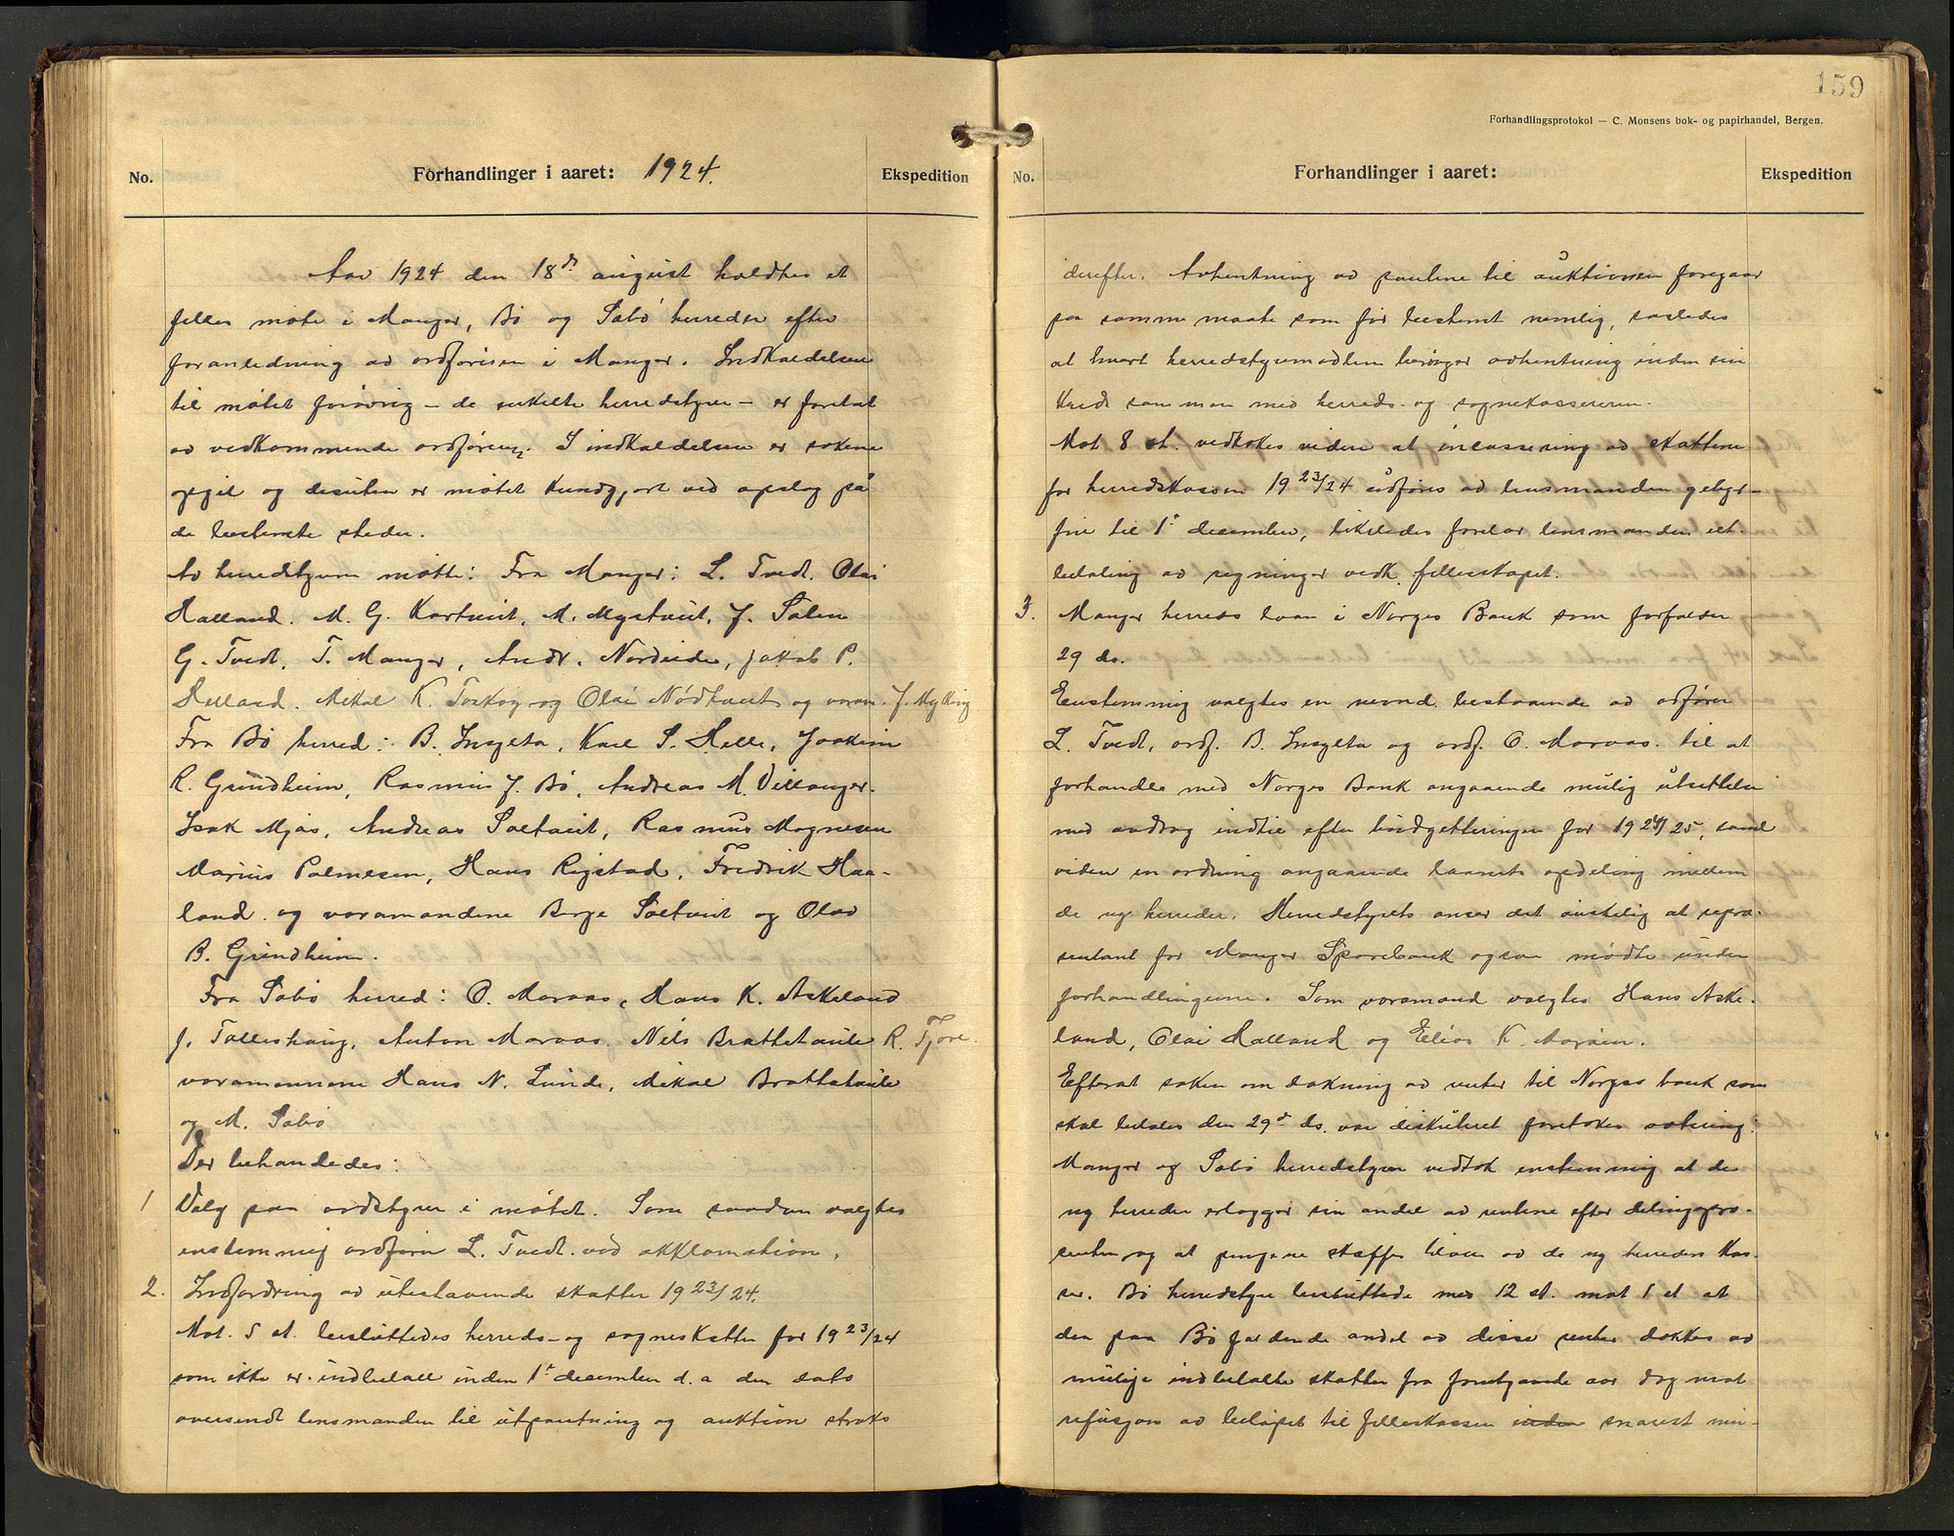 159
Forhandlingsprotokol — C. Monsens bok- og papirhandel, Bergen.
No. Forhandlinger i aaret: 1924. Ekspedition
Aar 1924 den 18de august holdtes et
felles møte i Manger, Bø og Sæbø herreder efter
foranledning av ordføreren i Manger. Indkaldelsen
til møtet forøvrig - de enkelte herredstyrer - er foretat
av vedkommende ordfører. I indkaldelsen er sakene
opgit og desuten er møtet kundgjort ved opslag på
de bestemte steder.
Av herredstyrene møtte: Fra Manger: L. Tvedt. Olai
Halland. M. G. Kartveit, M. Mystveit, J. Solem
G. Tvedt, T. Manger, Andr. Nordvik, Jakob P.
Helland. Mikal K. Toskog og Olai Nødtveit og varam. J. Mykling
Fra Bø herred: B. Insylta, Karl S. Helle, Joakim
R. Grindheim, Rasmus J. Bø, Andreas M. Villanger.
Isak Mjøs, Andreas Soltveit, Rasmus Mognesen
Marius Palmesen, Hans Rigstad, Fredrik Haa-
land og varamændene Berge Soltveit og Olav
B. Grindheim.
Fra Sæbø herred: O. Marøas, Hans K. Askeland
J. Talleshaug, Anton Maraas. Nils Brattetaule R. Fjore.
varamennene Hans N. Lunde, Mikal Brattetaule
og M. Sæbø
Der behandledes:
1 Valg paa ordstyrer i møtet. Som saadan valgtes
enstemmig ordfører L. Tvedt ved akklamation.
2. Indfordring av utestaaende skatter 1923/24.
Mot. 5 st. besluttedes herreds- og sogneskatter for 1923/24
som ikke er indbetalt inden 1ste december d.a den dato
oversendt lensmanden til utpantning og auktion straks
No. Forhandlinger i aaret: Ekspedition
derefter. Avhentning av pantene til auktionen foregaar
paa samme maate som før bestemt nemlig, saaledes
at hvert herredstyremedlem besørger avhentning inden sin
kreds sammen med herreds- og sognekassereren.
Mot 8 st. vedtokes videre at incassering av skattene
for herredskassen 1923/24 utføres av lensmanden gebyr-
frit til 1ste december, likeledes foretar lensmanden ut-
betaling av regninger vedk. fellesskapet.
3. Manger herreds laan i Norges Bank som forfalder
29 ds.
Enstemmig valgtes en nevnd bestaaende av ordfører
L. Tvedt, ordf. B. Insylta og ordf. O. Maraas til at
forhandle med Norges Bank angaaende mulig utsettelse
med avdrag indtil efter budgetteringen for 1924/25, samt
videre en ordning angaaende laanets opdeling mellem
de ny herreder. Herredstyrets anser det ønskelig at repræ-
sentant for Manger Sparebank ogsaa mødte under
forhandlingene. Som varamænd valgtes Hans Aske-
land, Olai Halland og Elias K. Marøen.
Efterat saken om dækning av renter til Norges bank som
skal betales den 29de ds. var diskuteret foretokes votering:
Manger og Sæbø herredstyrer vedtok enstemmig at de
ny herreder erlegger sin andel av rentene efter delingspro-
senten og at pengene skaffes tilveie av de ny herreders kas-
ser. Bø herredstyre besluttede med 12 st. mot 1 st at
den paa Bø faldende andel av disse renter dækkes av
mulige indbetalte skatter fra foregaaende aar dog mot
refusjon av beløpet til felleskassen inden snarest mu-